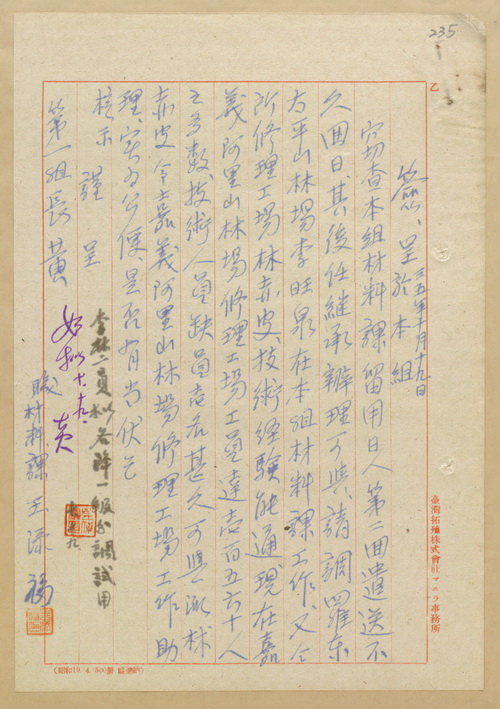 235
乙
簽呈 於本組 三五年十月十九日
竊查本組材料課留用日人第二回遣送不
久回日其後任繼承辦理可與請調羅東
太平山林場李旺泉在本組材料課工作又今
所修理工場林赤皮技術經驗能通現在嘉
義阿里山林場修理工場工員達壹百五六十人
之多數技術人員缺員壹名甚久可與派林
赤皮今嘉義阿里山林場修理工場工作助
理實為公便是否有當伏乞
核示
謹呈
第一組長黃
李林二員擬各降一級分調試用
如擬 十、九、 黃
職 材料課 王添福
臺灣拓殖株式會社マニラ事務所